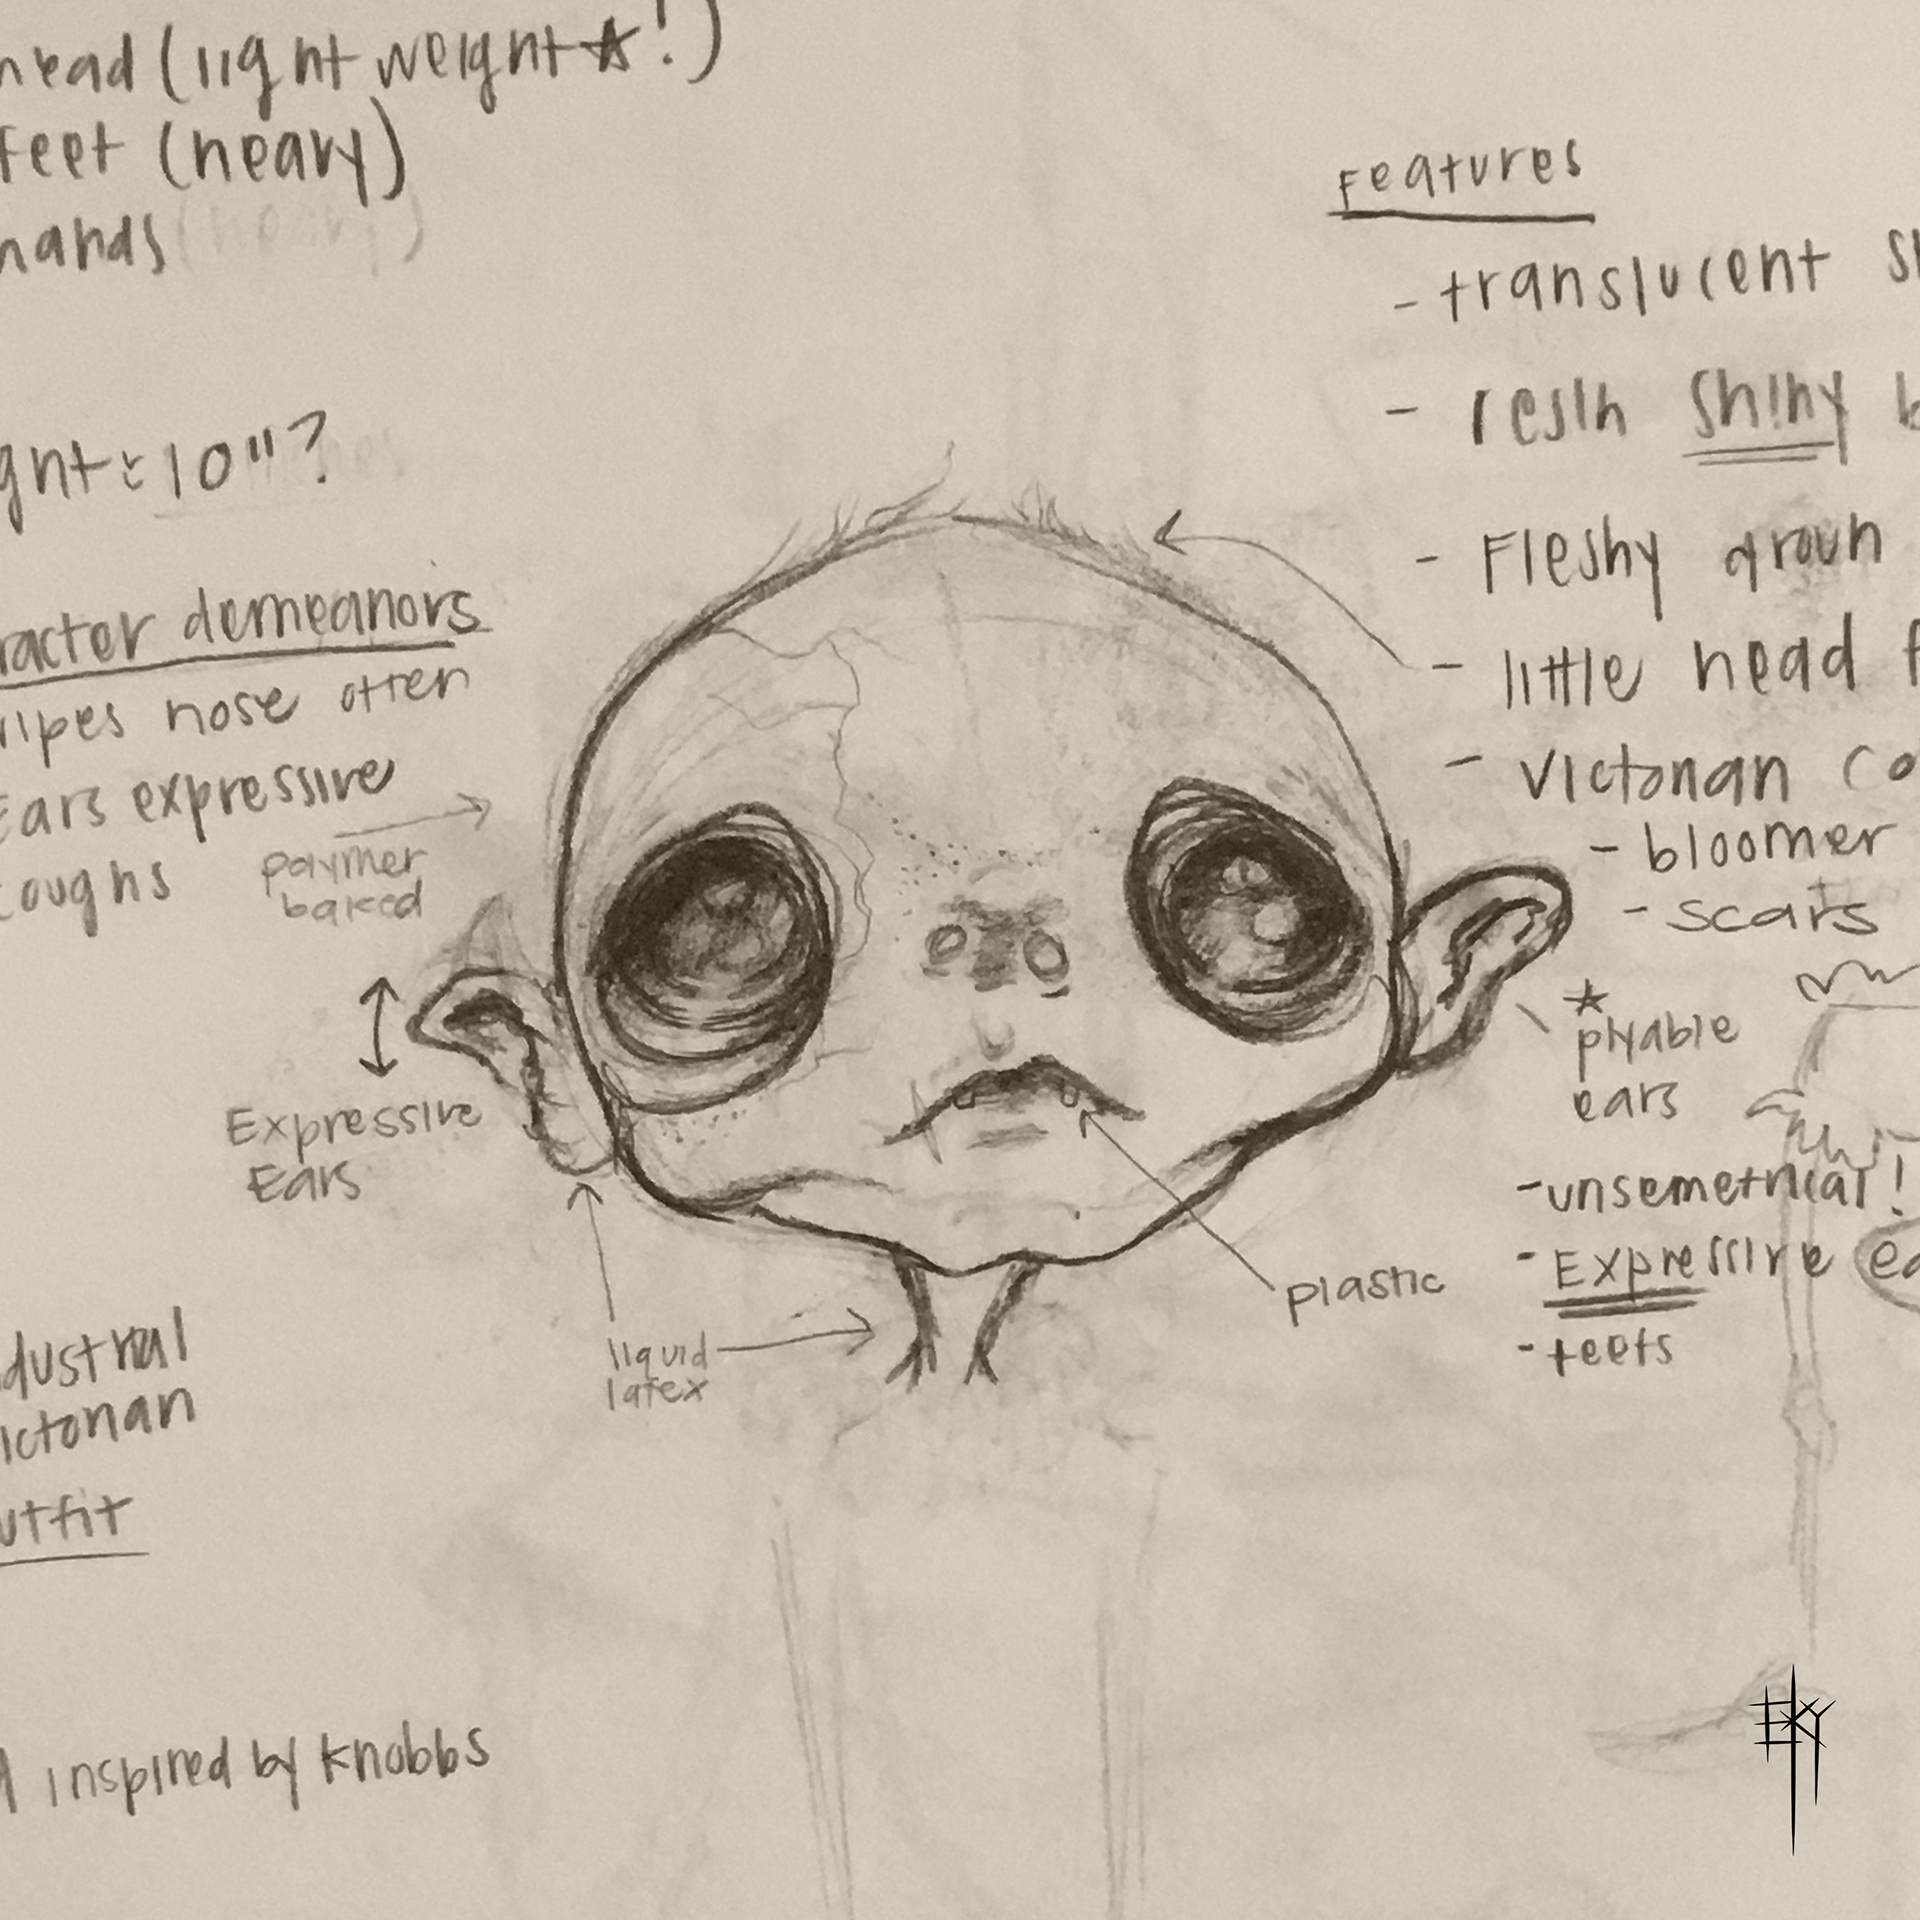 head (light weight ☆!)
feet (heavy)
hands (heavy)
ght: 10"?
racter demeanors
wipes nose often
Ears expressive
coughs
polymer
baked
Expressive
Ears
dustrial
ictorian
utfit
inspired by Knobbs
liquid
latex
plastic
Features
- translucent
- resin shiny b
- Fleshy groun
- little head f
- Victorian co
- bloomer
- scarfs
☆
plyable
ears
- unsemetrical!
- Expressive ea
- teets
EKY